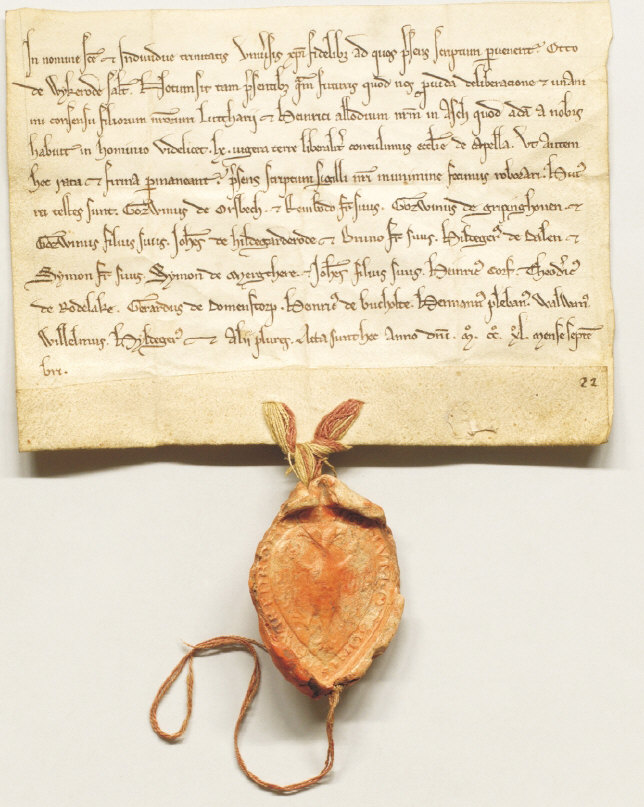 In nomine sce et Individue trinitatis Univsis xpi fidelibz ad quos psens scriptum pervenerit. Otto
de Wykerode salt. Notum sit tam psentibz qm futuris quod nos pvida deliberacione et unani
mi consensu filiorum nrorum Lutthari et Henrici allodium nrm in Asch quod ada a nobis
habuit in hominio videlicet lx. iugera terre liberalit contulimus ecclie de Capella. Ut autem
hec rata et firma pmaneant. psens scriptum sigilli nri munimine fecimus roborari. Huius
rei testes sunt. Gozwinus de Orsbech. et Rembodo fr suus. Gozwinus de et
Gozwinus filius suus. Johes de hildegarderode et Bruno fr suus. Hilteger de Dalen et
Symon fr suus. Symon de et Johes filius suus. Henric et Theodic
de Rodelake. Gerardus de Domenstorp. Henric de bucholte. Hermann pleban. Walwan
Willelmus. Hilteger et Alii plures. Acta sunt hec Anno dni. M. CC. XL. mense septe
bri.
22